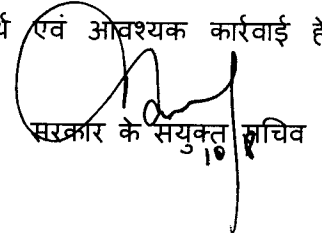 एवं आवश्यक कार्रवाई
सरकार के संयुक्त सचिव
10